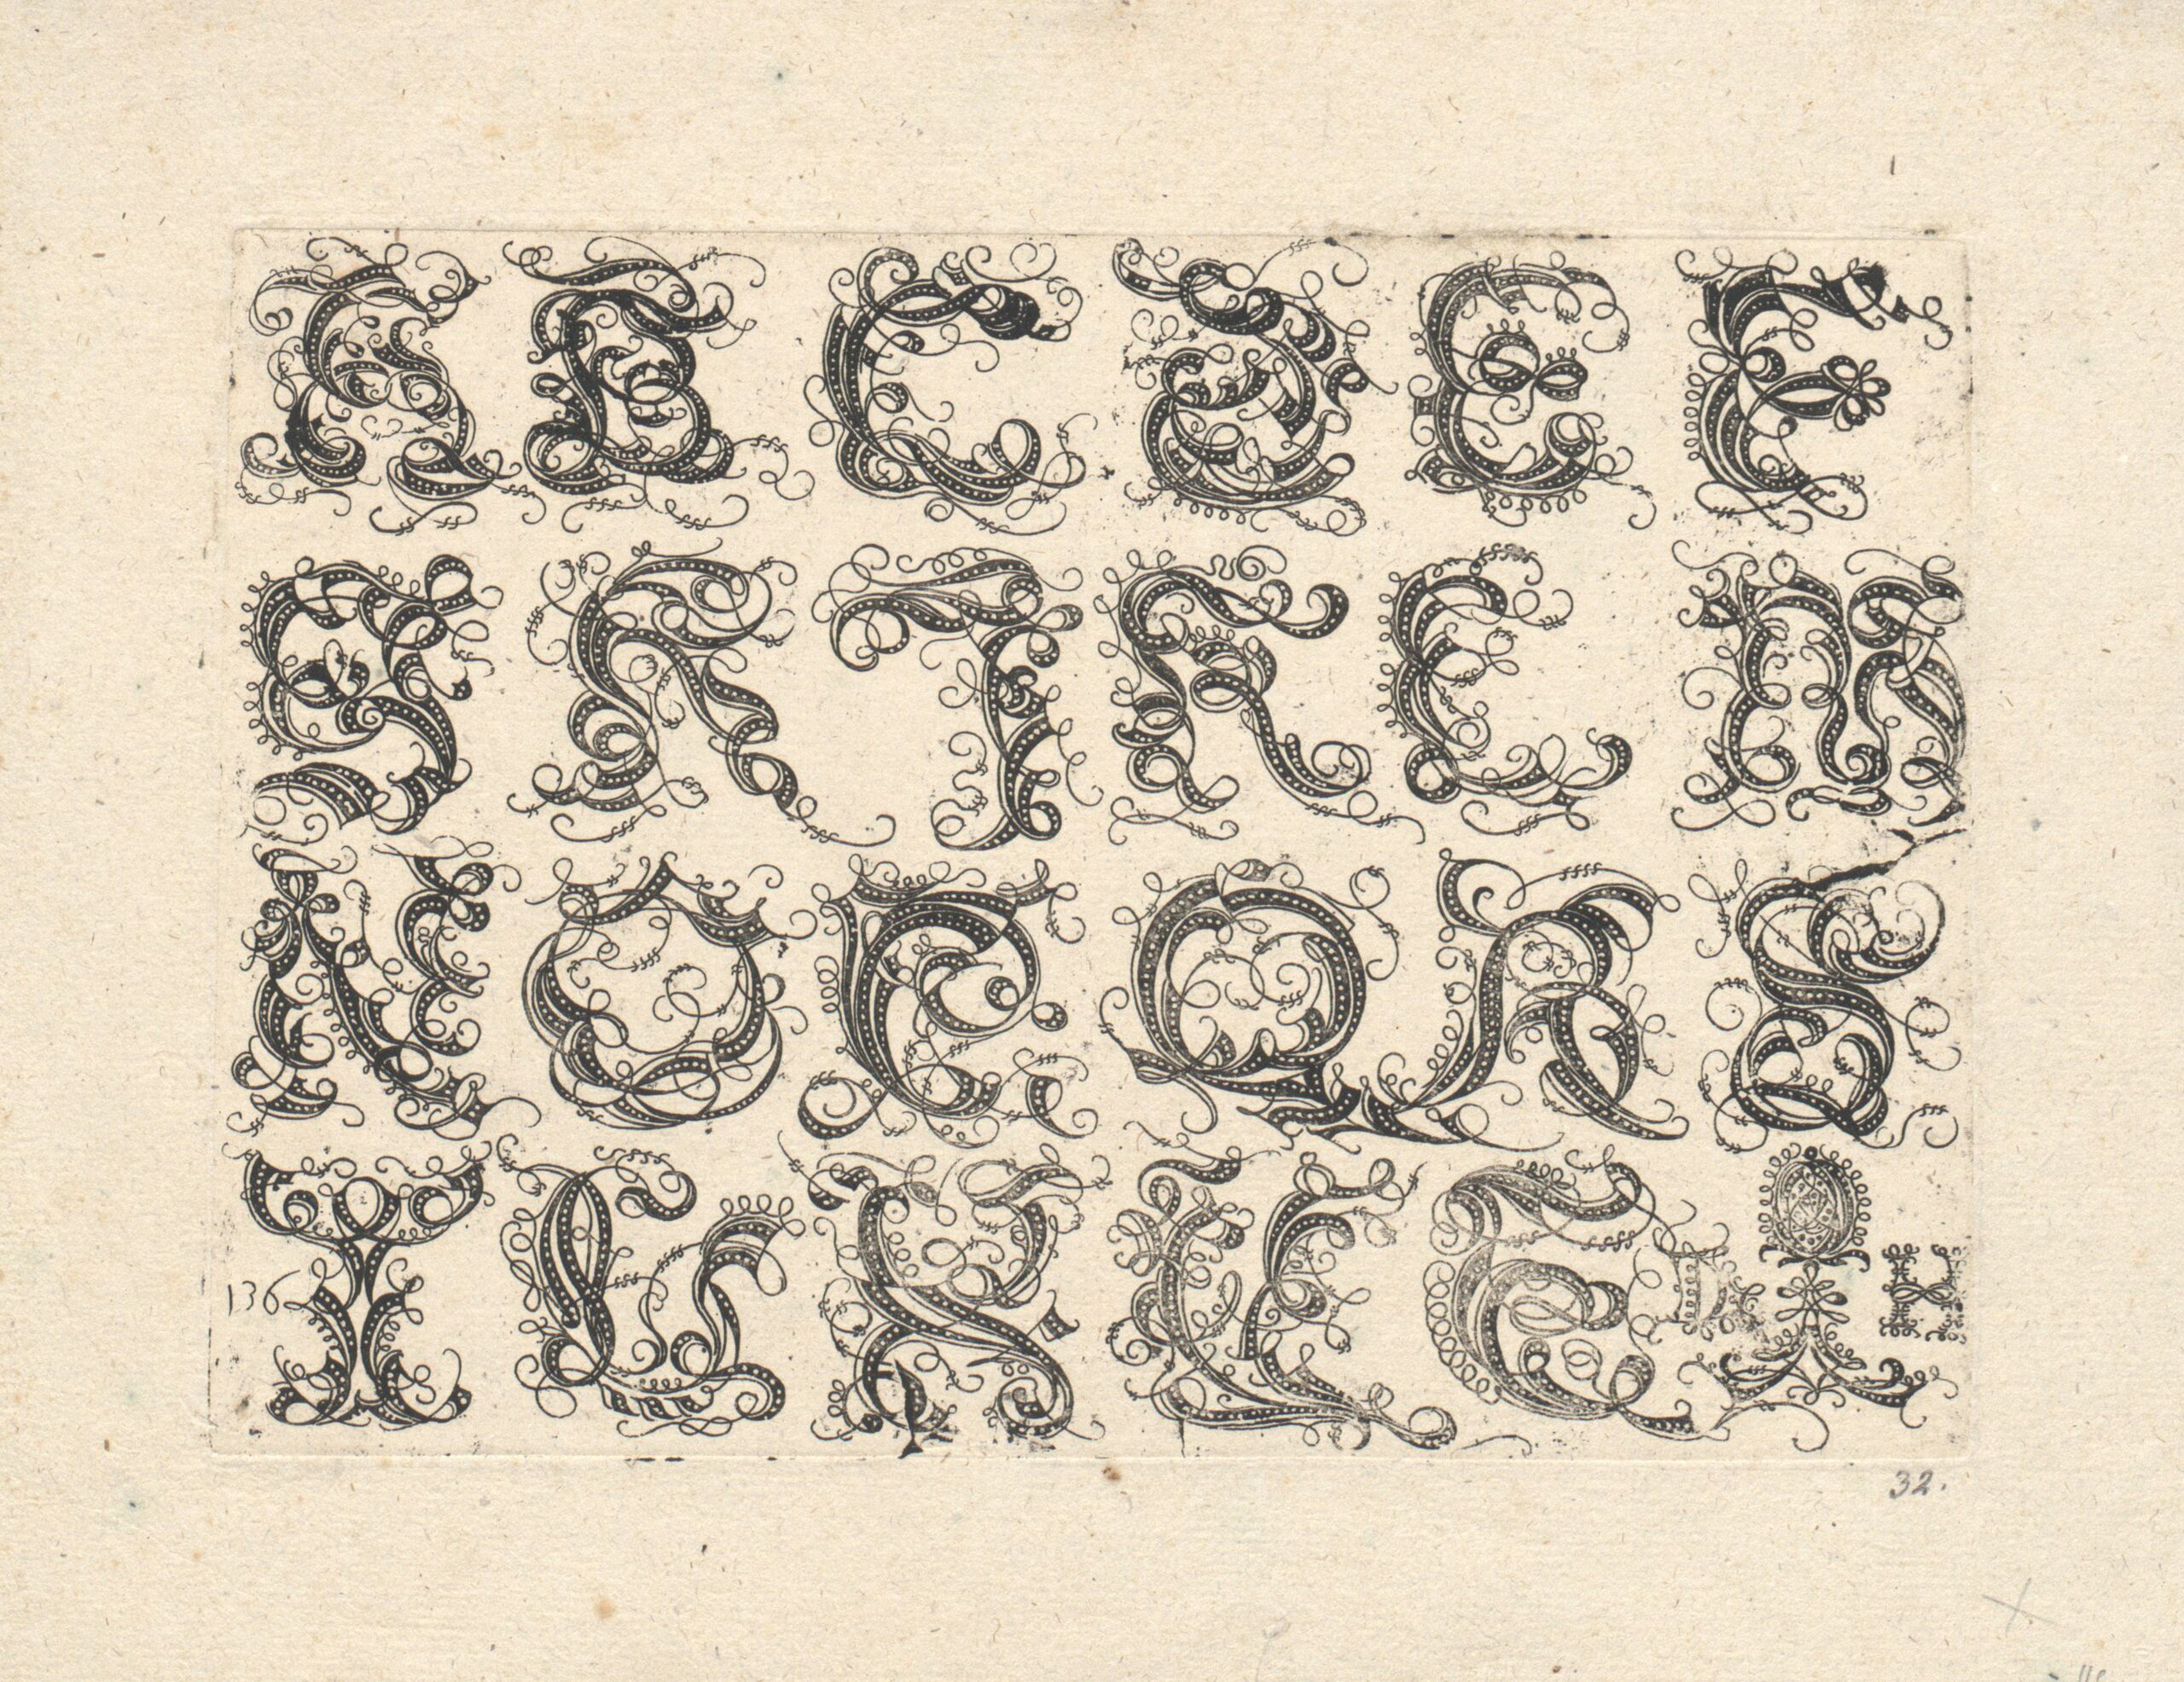 A B C D E F
G H I K L M
N O P Q R S
T V X Y Z D H
136
32.